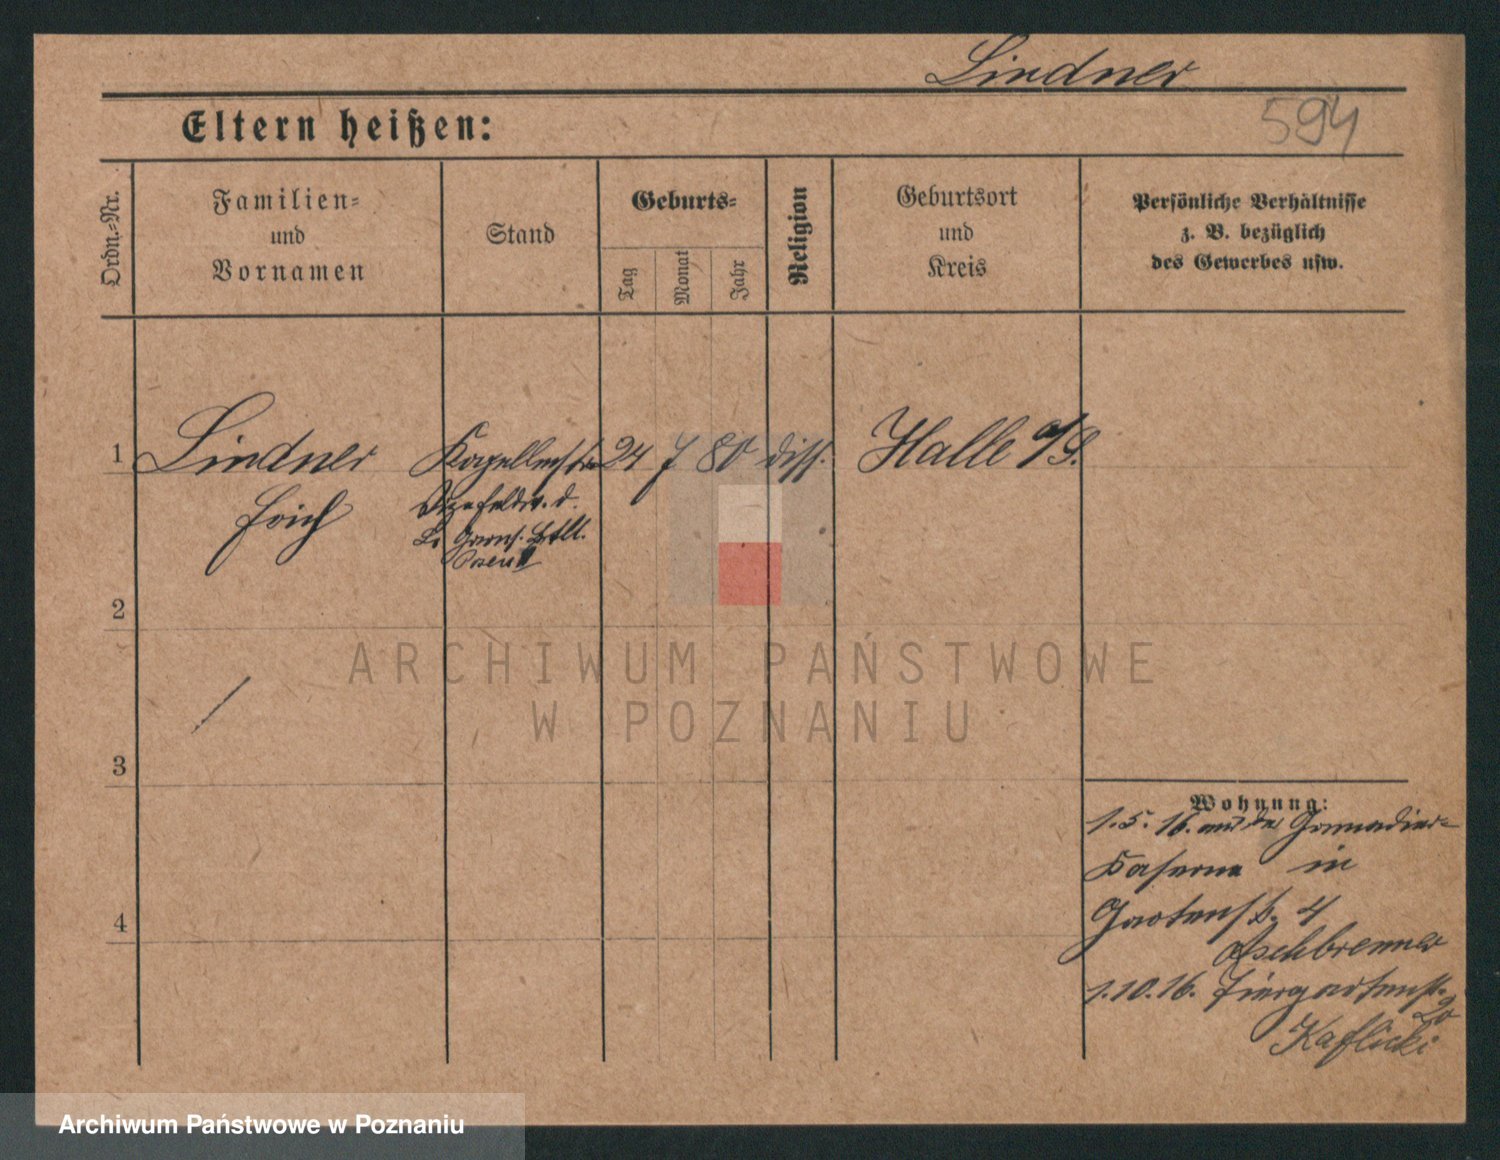 Lindner
594
Eltern heißen:
Ordn.-Nr.
Familien-
und
Vornamen
Stand
Geburts-
Tag
Monat
Jahr
Religion
Geburtsort
und
Kreis
Persönliche Verhältnisse
z. B. bezüglich
des Gewerbes usw.
1 Lindner 24 7 80 diss. Halle a/S.
Erich Vizefeldw. d.
Garns. Btll.
Posen
2
3
4
Wohnung:
1.5.16. aus der Grenadier-
Kaserne in
Gartenstr. 4
Aschbrenner
1.10.16. Tiergartenstr.
20
Kaflicki
ARCHIWUM PAŃSTWOWE
W POZNANIU
Archiwum Państwowe w Poznaniu